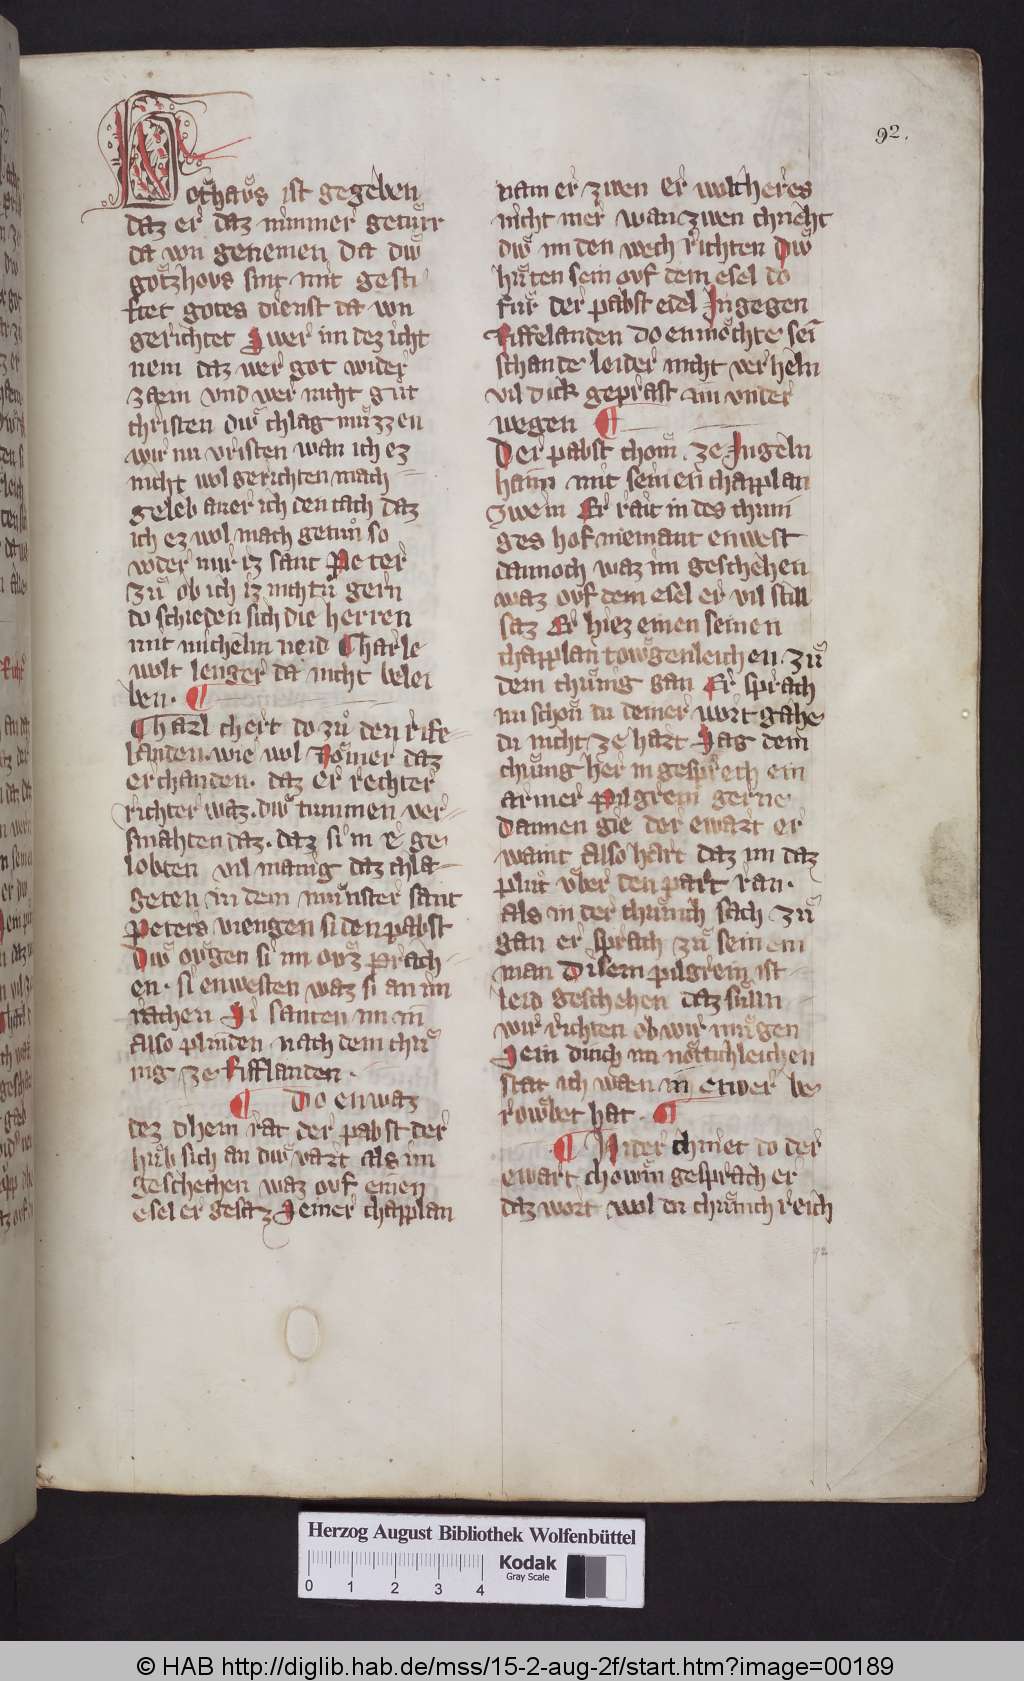 92.
Gothaus ist gegeben
daz er daz nimmer getuͤrr
da von genemen da diw
gotzhous sint mit gesti
ftet gotes dienst da von
gerichtet Swer im dez icht
nem daz wer got wider
zaem vnd wer nicht gut
christen diw chlag muͤzzen
wir nu vristen wan ich ez
nicht wol gerichten mach
geleb auer ich den tach daz
ich ez wol mach getuͦn so
voder mirz sant Peter
zuͦ ob ich iz nicht gern
do schieden sich die herren
mit micheln neid Charle
wolt lenger da nicht belei
ben. ¶
Charl chert do zuͦ den rife
landen. wie wol Roͤmer daz
erchanden. daz er rechter
richter waz. diw tummen ver
smahten daz. daz si im e ge
lobten vil manig daz chla
geten in dem munster sant
Peters viengen si den pabst
Diw ougen si im ouz prach
en. si enwesten waz si an im
rachen Si santen im in
also plinden nach dem chuͤ
nig ze Rifflanden.
¶ Do enwaz
dez dhein rat der pabst der
huͦb sich an diw vart als im
geschehen waz ouf einen
esel er gesaz Seiner chapplan
nam er zwen er wolt heres
nicht mer wan zwen chneht
diw im den wech richten Diw
huͤten sein ouf dem esel do
fuͦr der pabst edel Ingegen
Riffelanden do enmochte sein
schande leider nicht verheln
vil dick geprast im vnder
wegen ¶
Der pabst chom ze Ingeln
haim mit seinen chapplan
zwein Er rait in des chuni
ges hof niemant enwest
dannoch waz im geschehen
waz ouf dem esel er vil still
saz Er hiez einen seinen
chapplan towgenleichen zuͦ
dem chuͤnig gan Er sprach
nu schon du deiner wort gahe
du nicht ze hart Sag dem
chuͤnig her in gesprech ein
armer Pilgreim gerne
Dannen gie der ewart er
waint also hart daz im daz
pluͦt vͤber den part ran.
Als in der chuͤnich sach zuͦ
gan er sprach zuͦ seinem
man Disem pilgreim ist
leid geschehen daz suͤlln
wir richten ob wir muͤgen
Sein durch in noͤttichleichen
stat ich waen in etwer be
rowbet hat. ¶
¶ Nider chniet do der
ewart chowm gesprach er
daz wort wol du chuͤnich reich
92
Herzog August Bibliothek Wolfenbüttel
0 1 2 3 4
Kodak
Gray Scale
© HAB http://diglib.hab.de/mss/15-2-aug-2f/start.htm?image=00189